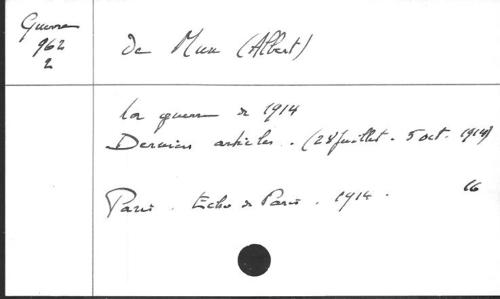 Guerre
962
2
De Mun (Albert)
La guerre de 1914
Derniers articles. (28 juillet - 5 oct. 1914)
Paris. Echo de Paris. 1914. 16